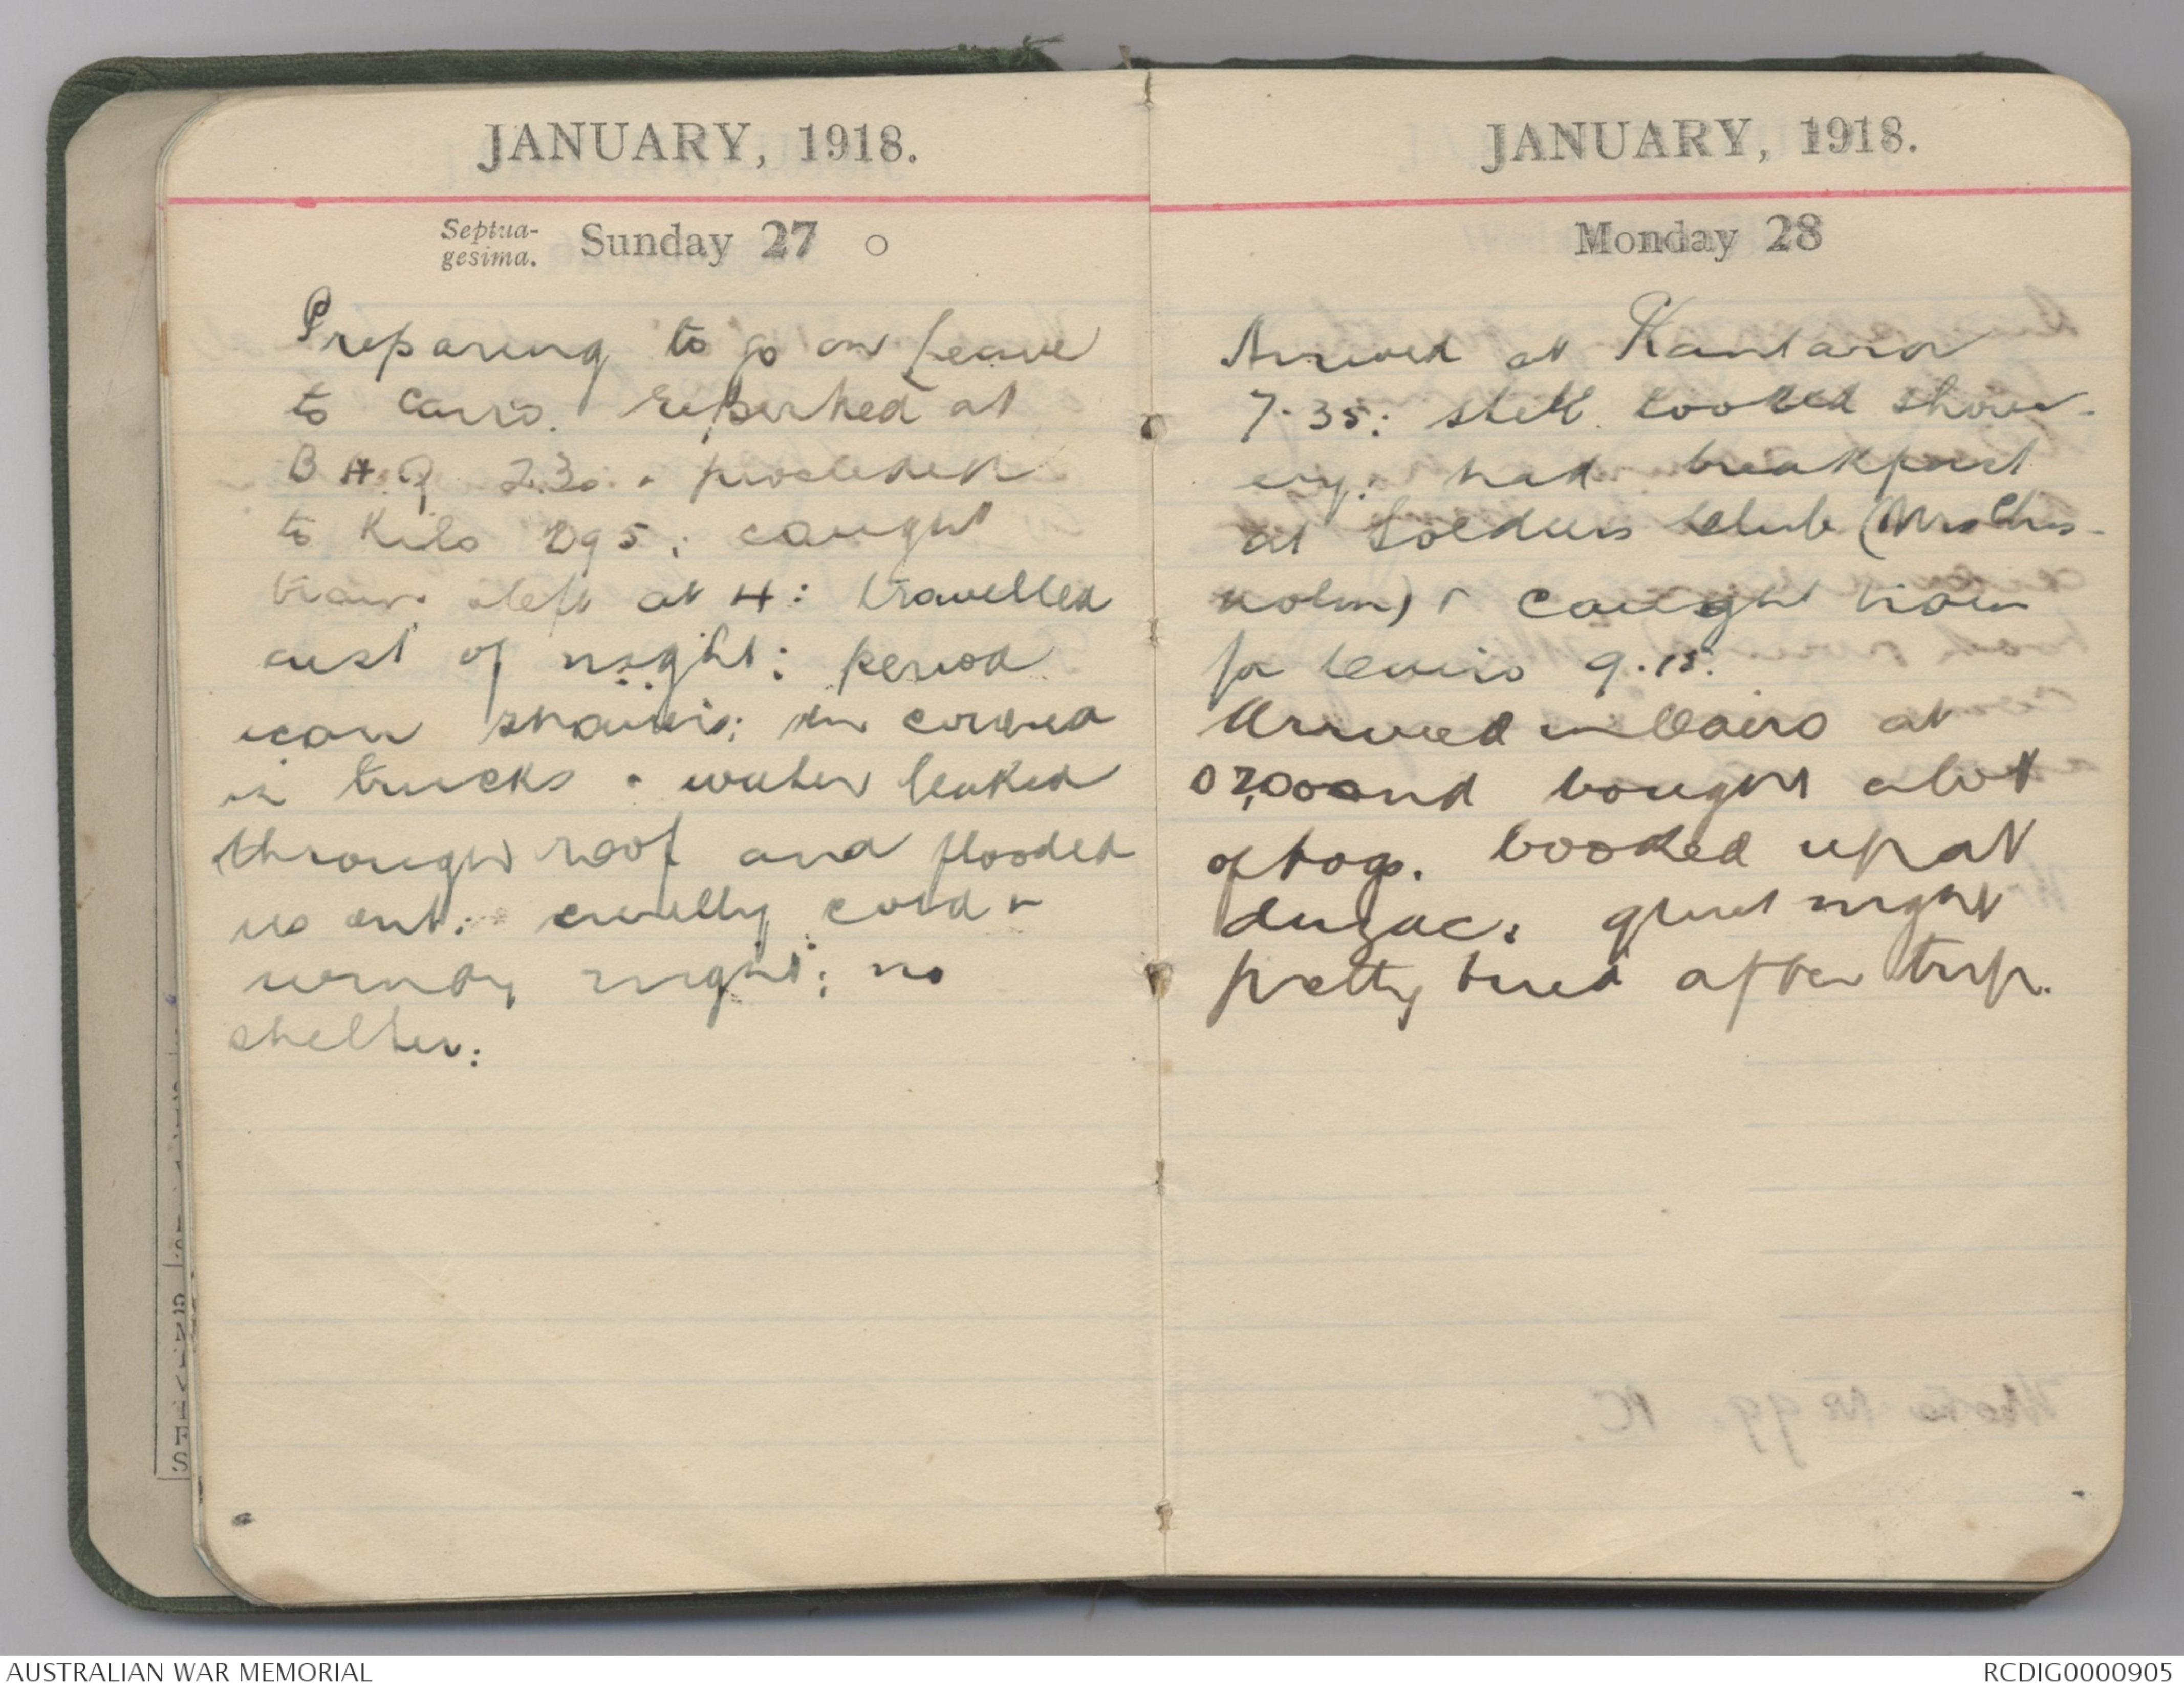 JANUARY, 1918.
Septua-
gesima. Sunday 27
Preparing to go on Leave
to Cairo. reported at
B H.Q 2.30. & proceeded
to Kilo 295; caught
train & left at 4: travelled
rest of night:
rain in covered
in trucks & water leaked
through roof and flooded
us out: cruelly cold &
windy night; no
shelter:
JANUARY, 1918.
Monday 28
Arrived at Kantara
7.35: still looked show-
ery: had breakfast
at Soldiers Club (Mrs Chis-
holm) & caught train
for Cairo 9.15.
Arrived in Cairo at
and bought a lot
of togs. booked up at
quiet night
pretty tired after trip.
AUSTRALIAN WAR MEMORIAL
RCDIG0000905